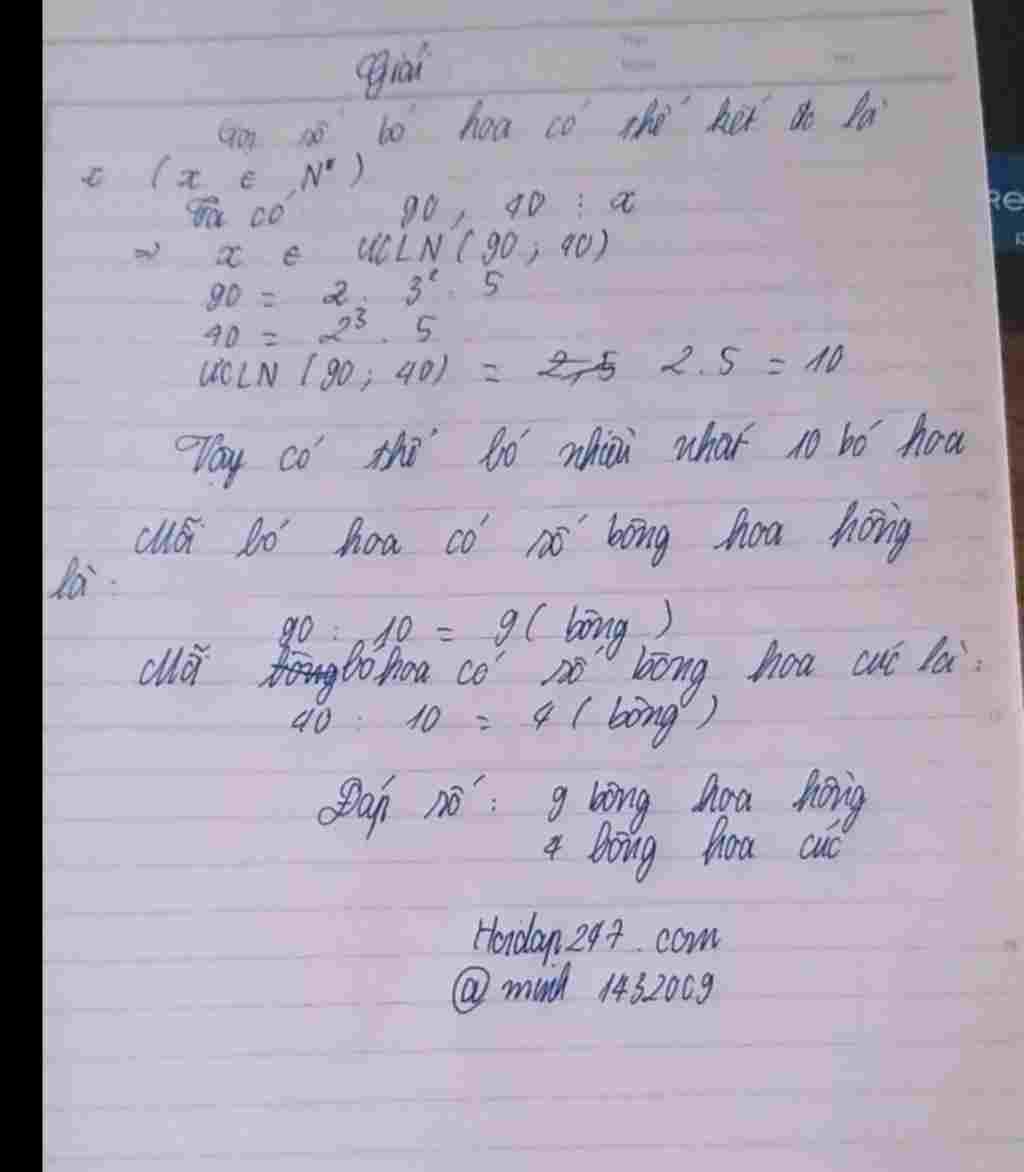 Giải
Gọi số bó hoa có thể kết đc là
x (x ∈ N*)
Ta có 90, 40 ⋮ x
⇒ x ∈ ƯCLN (90; 40)
90 = 2. 3². 5
40 = 2³. 5
ƯCLN (90; 40) = 2,5 2.5 = 10
Vậy có thể bó nhiều nhất 10 bó hoa
Mỗi bó hoa có số bông hoa hồng
là:
90 : 10 = 9 ( bông )
Mỗi bông bó hoa có số bông hoa cúc là:
40 : 10 = 4 ( bông )
Đáp số: 9 bông hoa hồng
4 bông hoa cúc
Hoidap247.com
@minh 1432009
Re